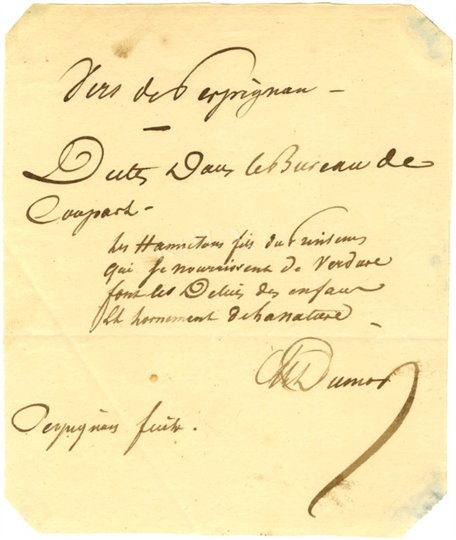 Vers de Perpignan -
Dites Dans le Bureau de
Coupart -
les Hannetons fils du Prinsems
qui se nourrissent de Verdure
font les Delices des enfans
Et hornement de hanature -
Dumas
Perpignan fecit.